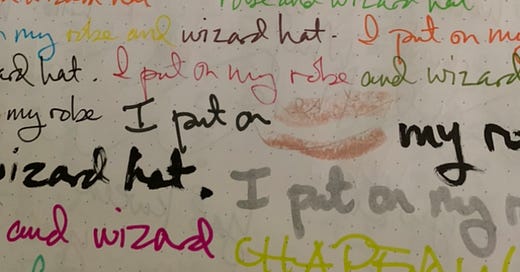 robe and wizard hat
my robe and wizard hat. I put on my
hat. I put on my robe and wizard
my robe I put on my
wizard hat. I put on my
and wizard